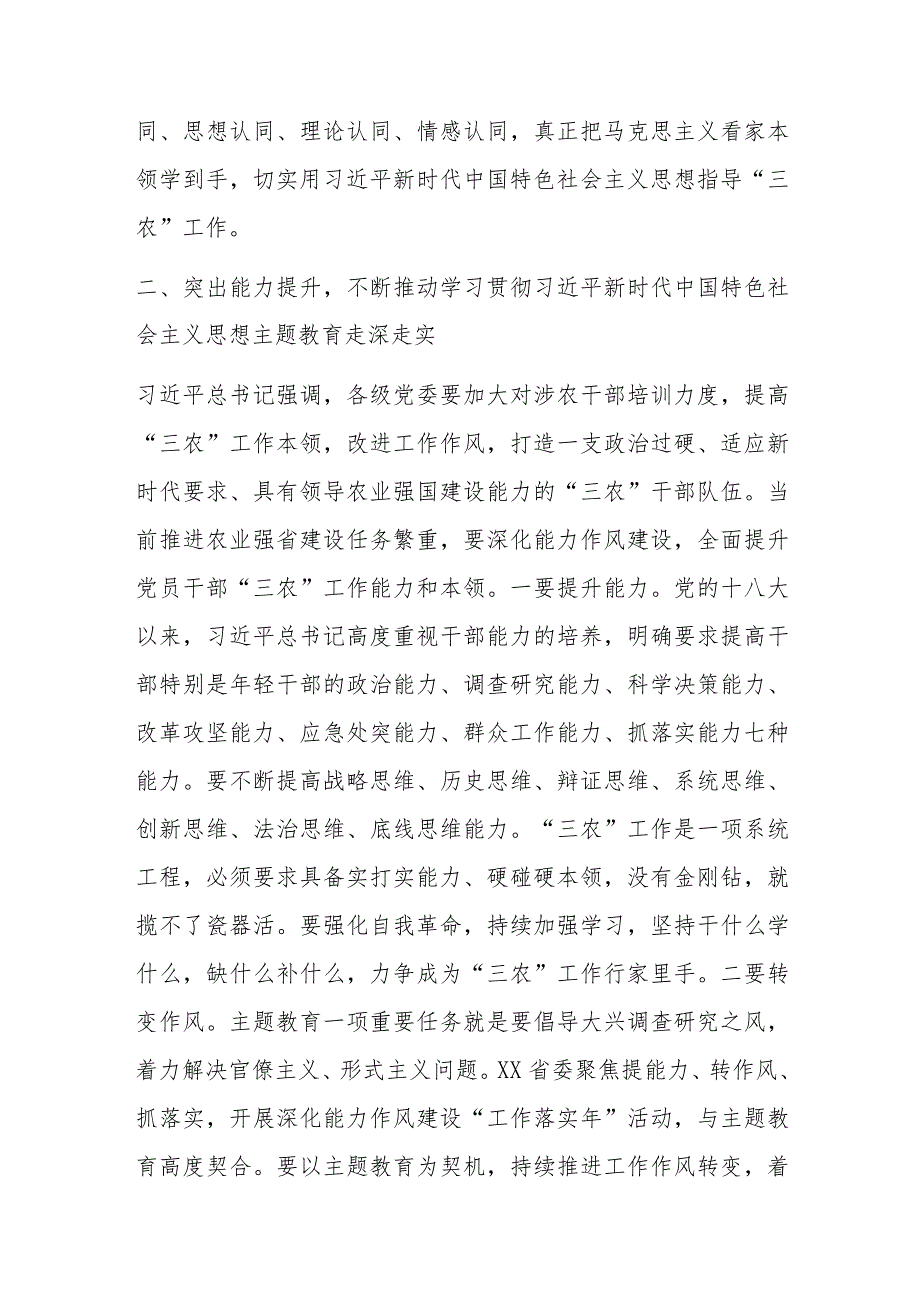 同、思想认同、理论认同、情感认同，真正把马克思主义看家本
领学到手，切实用习近平新时代中国特色社会主义思想指导“三
农”工作。
二、突出能力提升，不断推动学习贯彻习近平新时代中国特色社
会主义思想主题教育走深走实
习近平总书记强调，各级党委要加大对涉农干部培训力度，提高
“三农”工作本领，改进工作作风，打造一支政治过硬、适应新
时代要求、具有领导农业强国建设能力的“三农”干部队伍。当
前推进农业强省建设任务繁重，要深化能力作风建设，全面提升
党员干部“三农”工作能力和本领。一要提升能力。党的十八大
以来，习近平总书记高度重视干部能力的培养，明确要求提高干
部特别是年轻干部的政治能力、调查研究能力、科学决策能力、
改革攻坚能力、应急处突能力、群众工作能力、抓落实能力七种
能力。要不断提高战略思维、历史思维、辩证思维、系统思维、
创新思维、法治思维、底线思维能力。“三农”工作是一项系统
工程，必须要求具备实打实能力、硬碰硬本领，没有金刚钻，就
揽不了瓷器活。要强化自我革命，持续加强学习，坚持干什么学
什么，缺什么补什么，力争成为“三农”工作行家里手。二要转
变作风。主题教育一项重要任务就是要倡导大兴调查研究之风，
着力解决官僚主义、形式主义问题。XX省委聚焦提能力、转作风、
抓落实，开展深化能力作风建设“工作落实年”活动，与主题教
育高度契合。要以主题教育为契机，持续推进工作作风转变，着